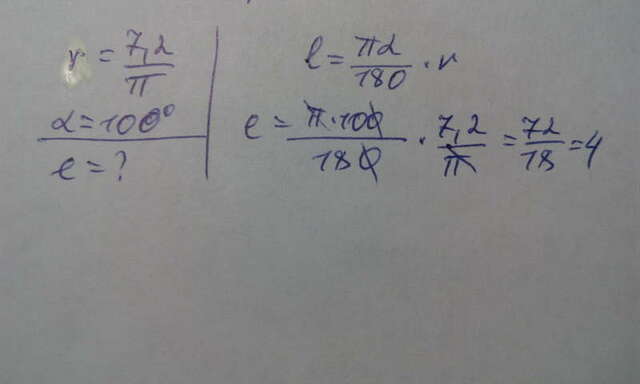 r = 7,2/π
α = 100°
ℓ = ?
ℓ = πα/180 · r
ℓ = π·100/180 · 7,2/π = 72/18 = 4